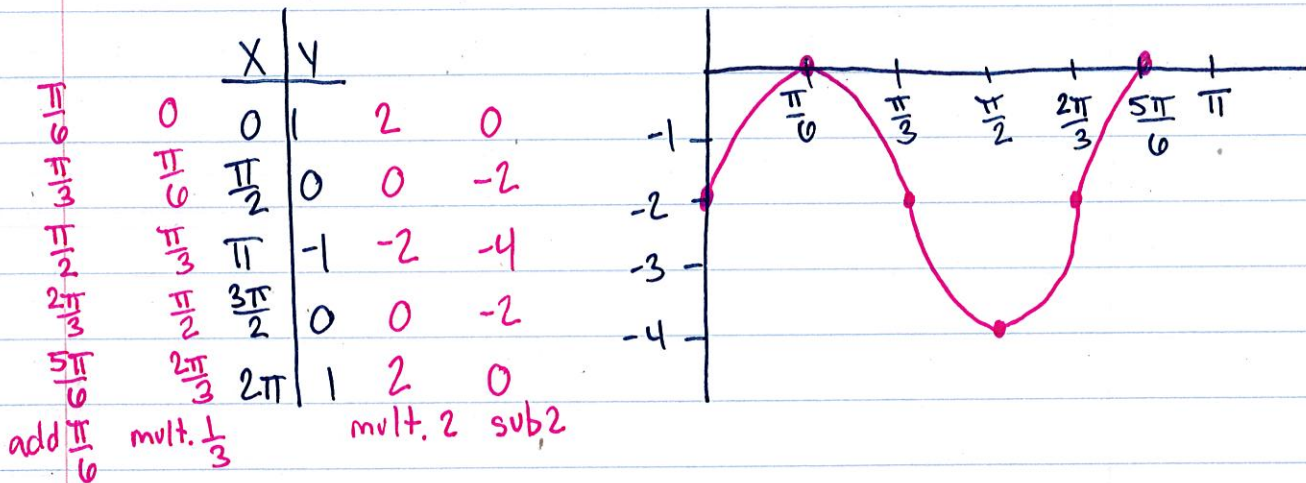 X Y
π/6 0 0 1 2 0
π/3 π/6 π/2 0 0 -2
π/2 π/3 π -1 -2 -4
2π/3 π/2 3π/2 0 0 -2
5π/6 2π/3 2π 1 2 0
add π/6 mult. 1/3 mult. 2 sub 2
π/6 π/3 π/2 2π/3 5π/6 π
-1
-2
-3
-4